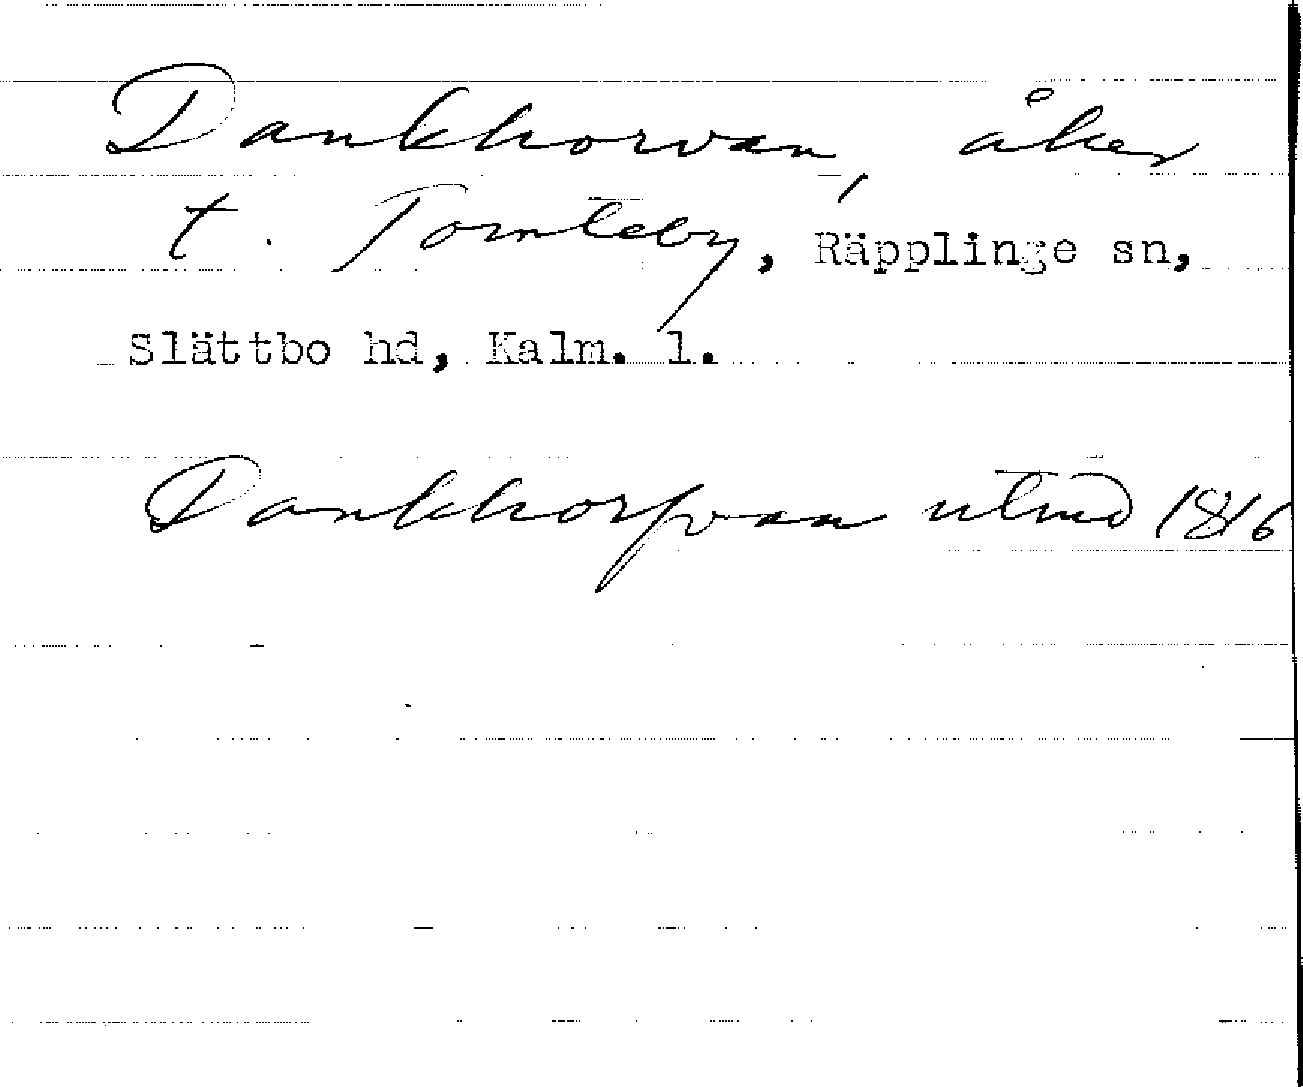 Dankhorvan, åker
t. Tomteby, Räpplinge sn,
Slättbo hd, Kalm. l.
Dankhorfvan utmd 1816